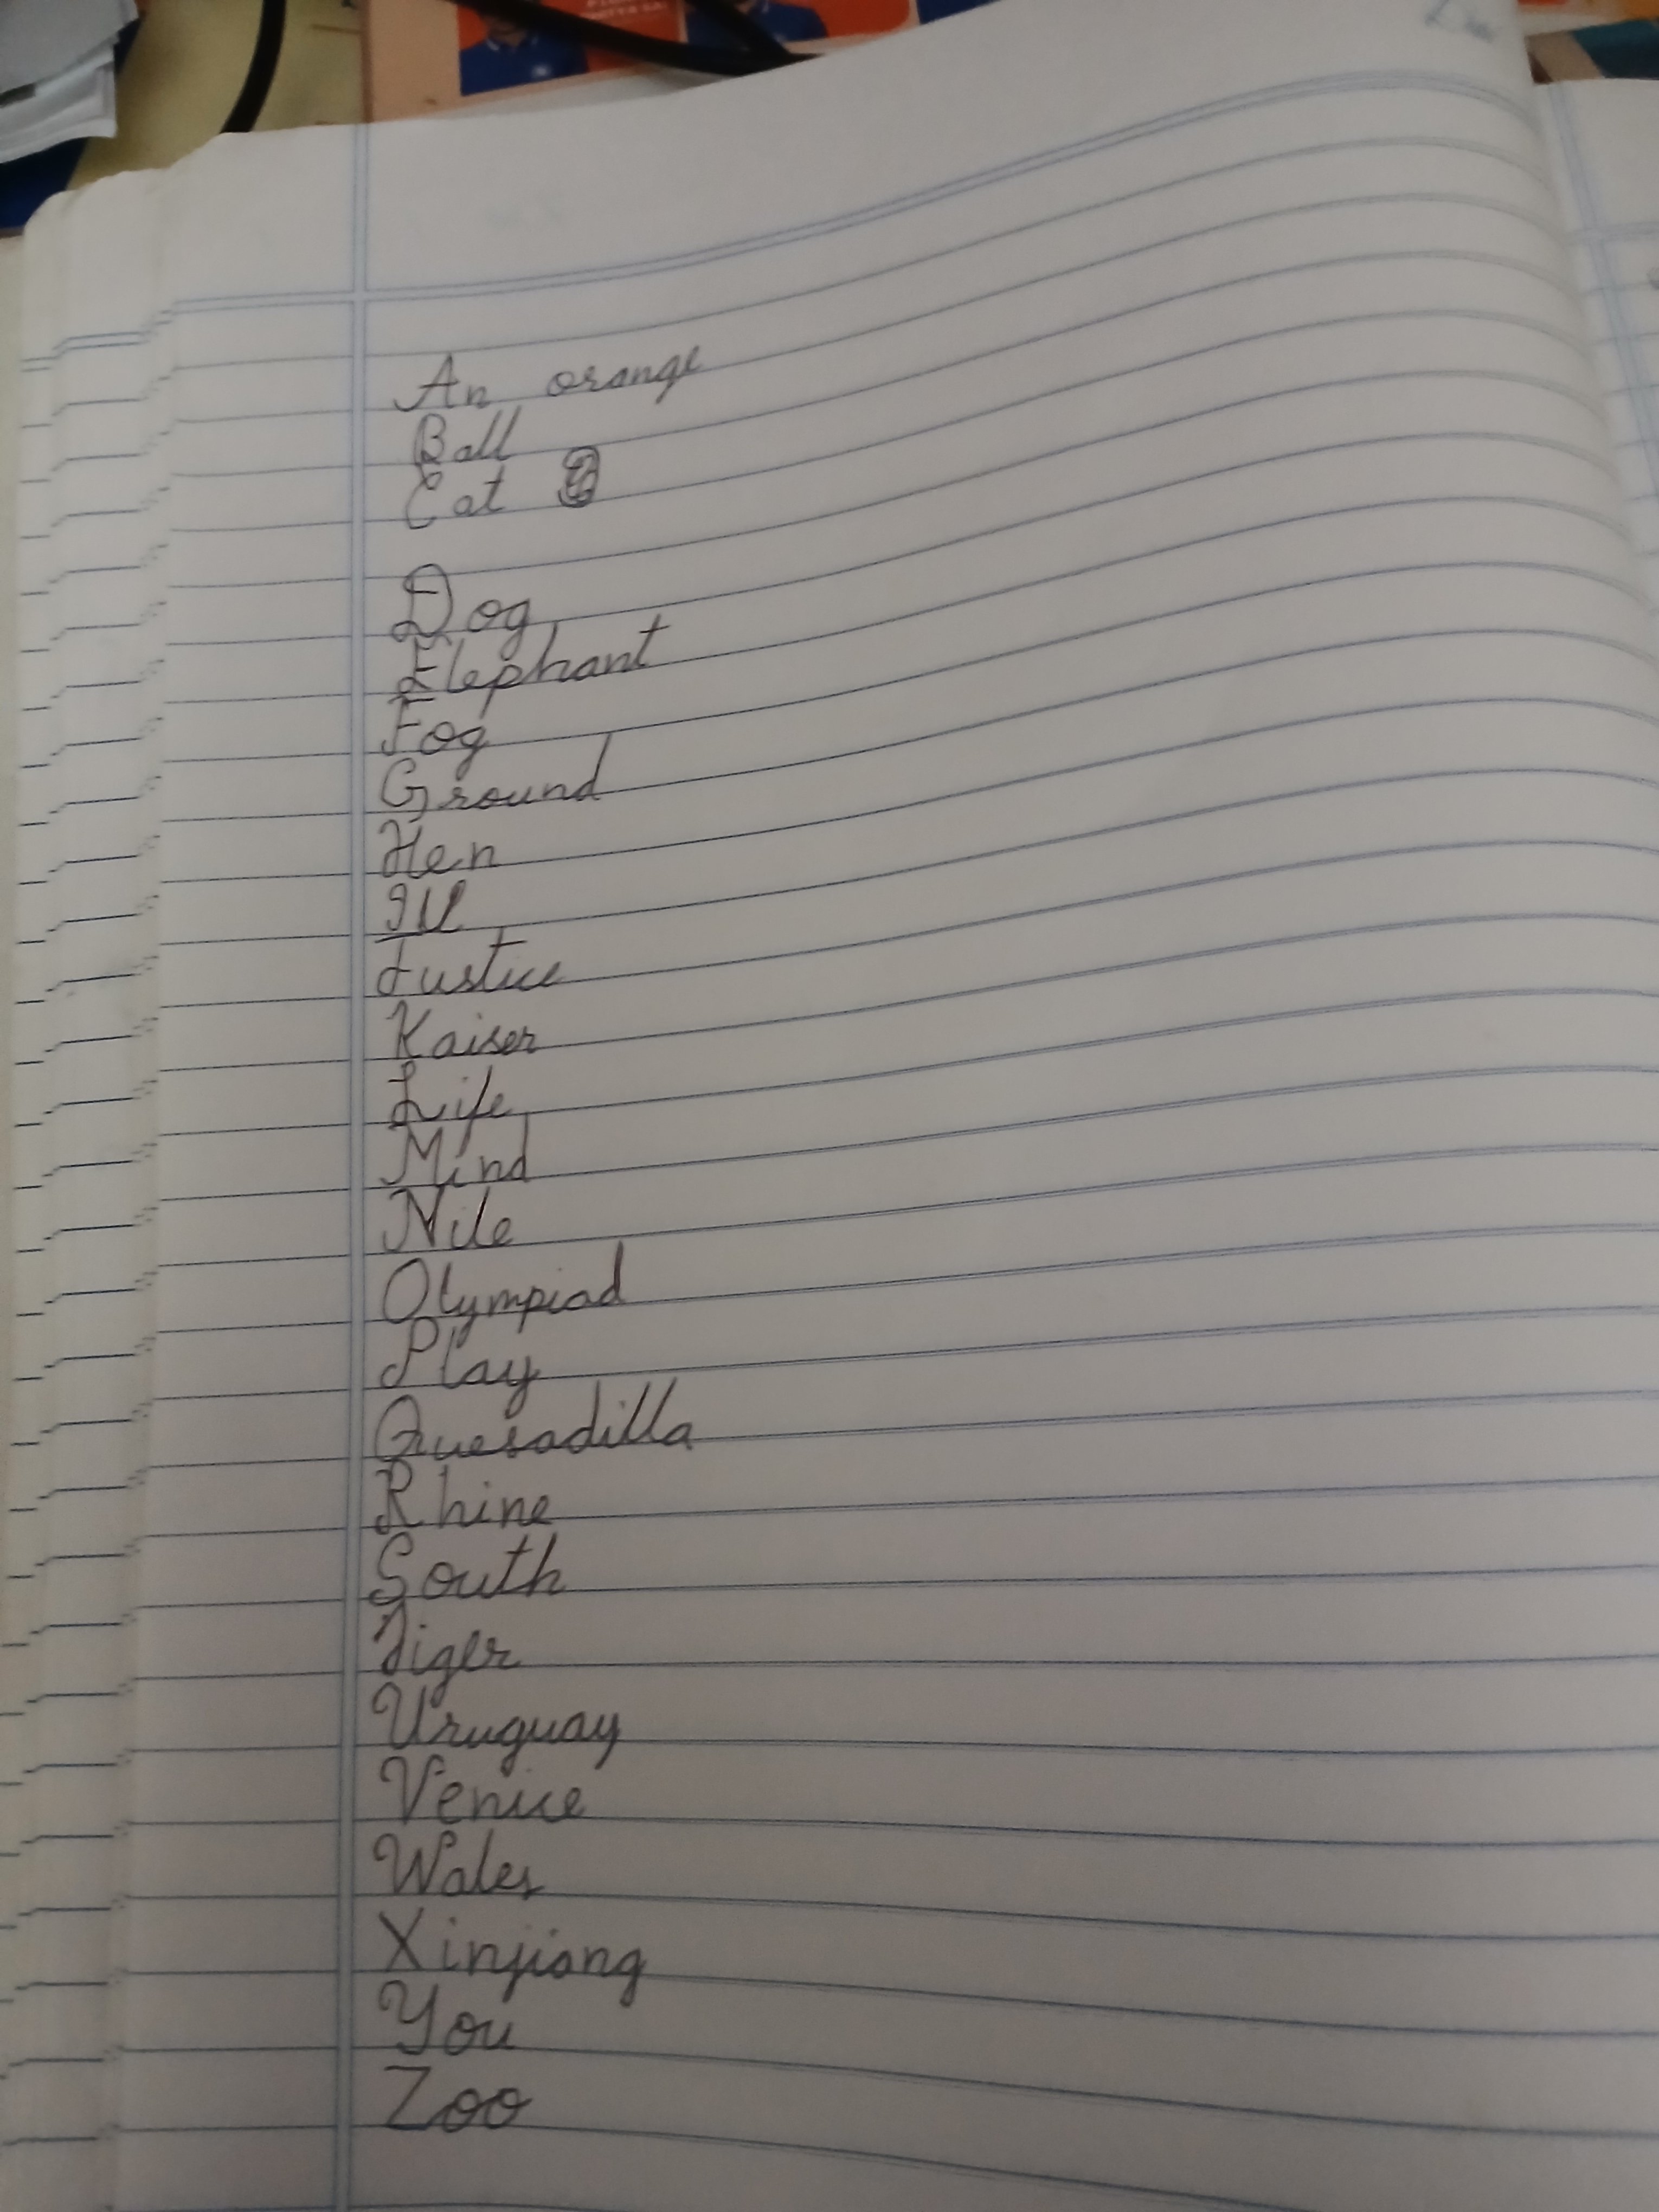 An orange
Ball
Cat
Dog
Elephant
Fog
Ground
Hen
Ill
Justice
Kaiser
Life
Mind
Nile
Olympiad
Play
Quesadilla
Rhine
South
Tiger
Uruguay
Venice
Wales
Xinjiang
You
Zoo